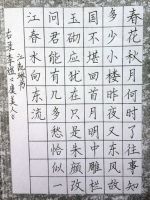 春花秋月何时了往事知
多少小楼昨夜又东风故
国不堪回首月明中雕栏
玉砌应犹在只是朱颜改
问君能有几多愁恰似一
江春水向东流
李煜《虞美人》